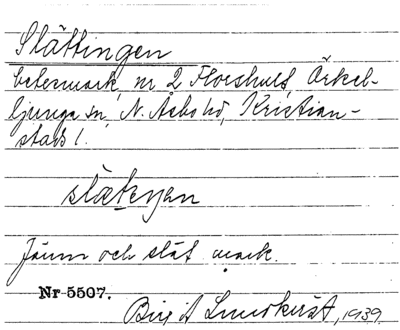 Slättingen
betesmark, nr 2 Floeshult, Örkel-
ljunga sn, N. Åsbo hd, Kristian-
stads l.
slætıŋən
Jämn och slät mark.
Nr 5507.
Birgit Lundkvist, 1939.